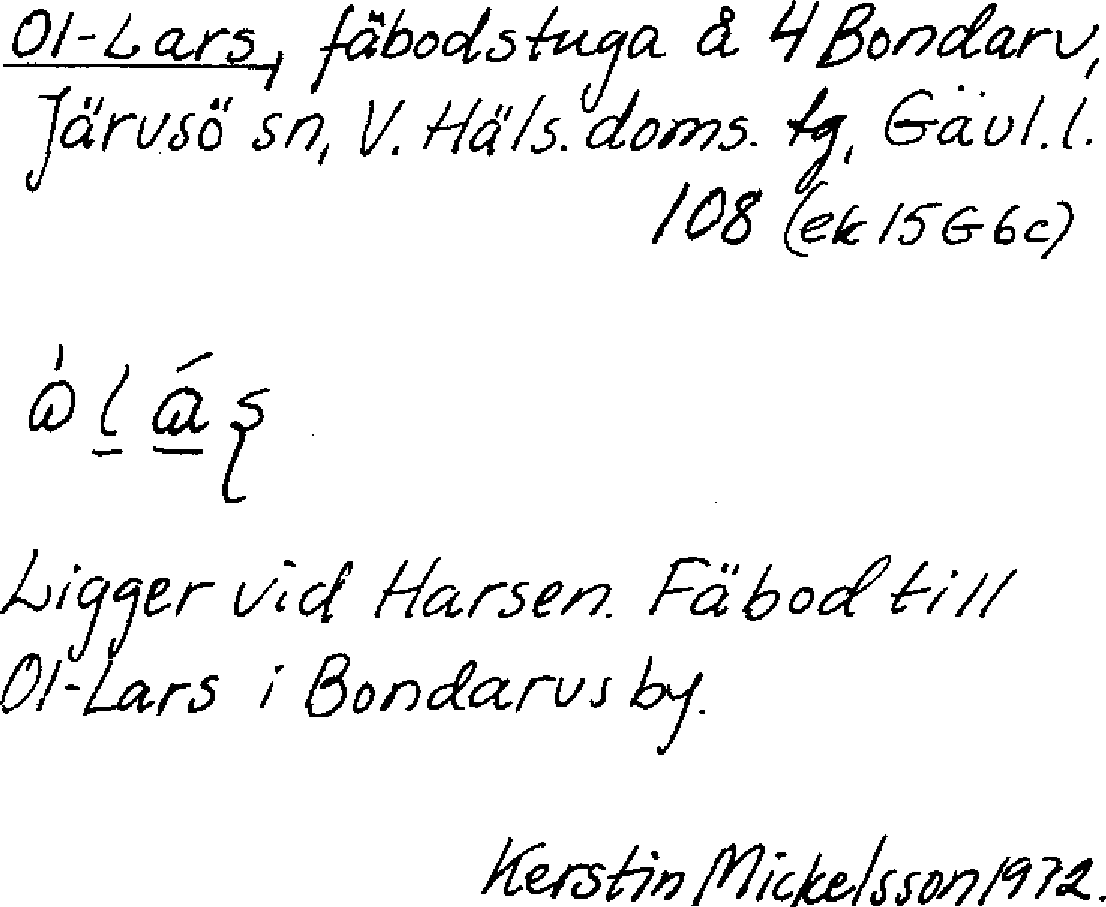 Ol-Lars, fäbodstuga å 4 Bondarv,
Järvsö sn, V. Häls. doms. tg, Gävl. l.
108 (ek 15 G 6c)
Ligger vid Harsen. Fäbod till
Ol-Lars i Bondarvs by.
Kerstin Mickelsson 1972.